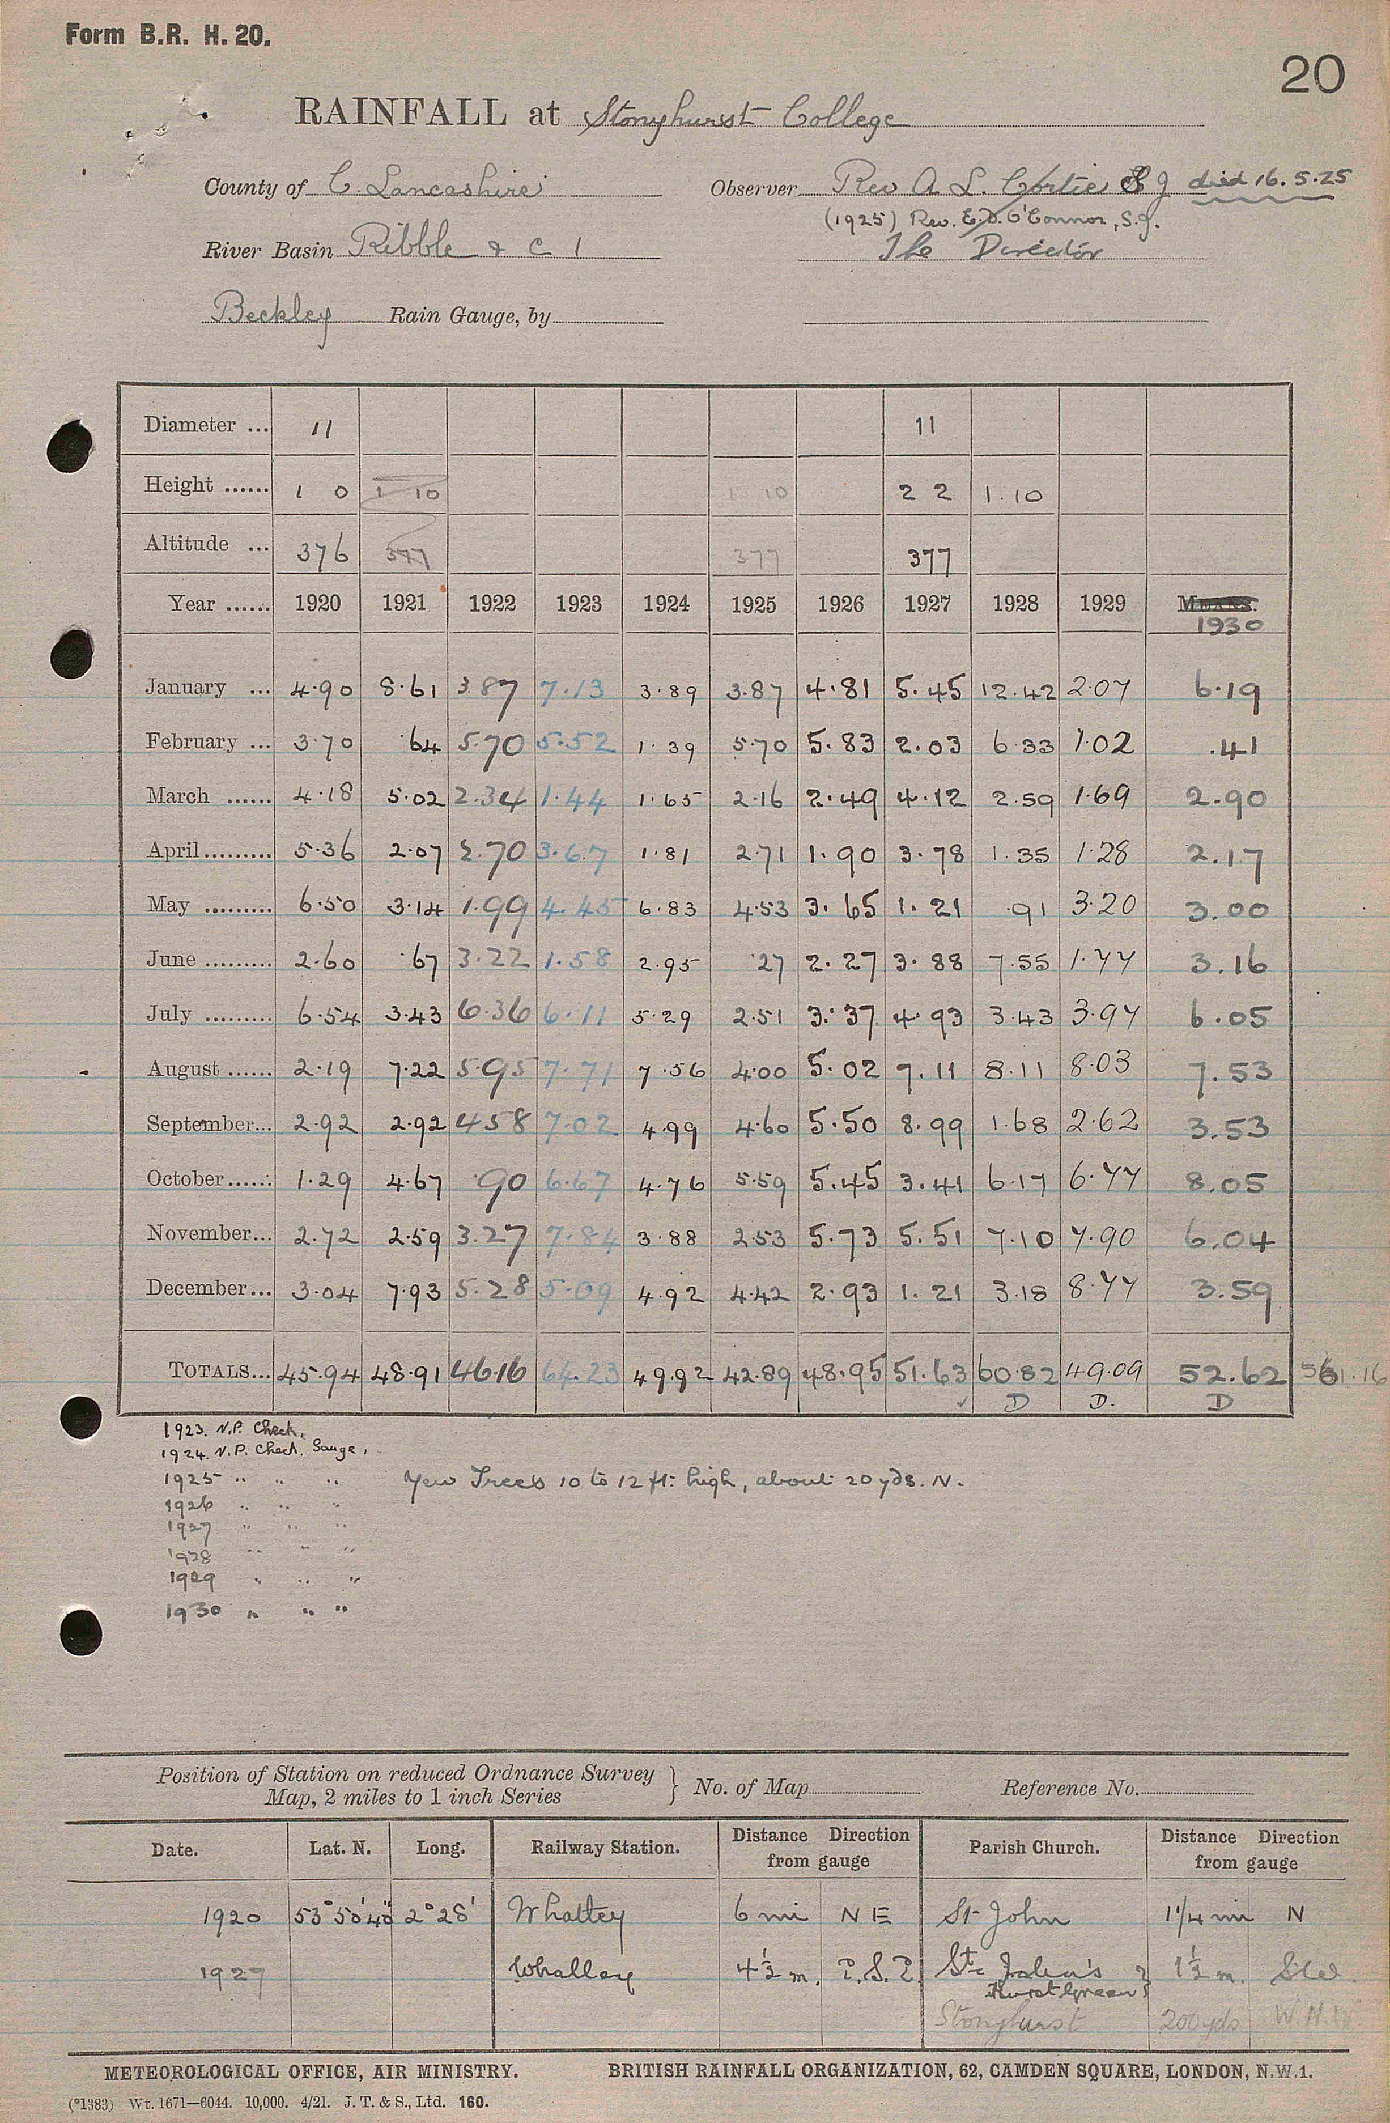 Form B.R. H. 20.
20
RAINFALL at Stonyhurst College
County of C Lancashire Observer Rev A. L. Cortie S J died 16.5.25
(1925) Rev. E.D. O'Connor, S.J.
River Basin Ribble & C 1 The Director
Beckley Rain Gauge, by
Diameter ... 11 11
Height ...... 1 0 1 10 1 10 2 2 1.10
Altitude ... 376 377 377 377
Year ...... 1920 1921 1922 1923 1924 1925 1926 1927 1928 1929 MEANS.
1930
January ... 4.90 8.61 3.87 7.13 3.89 3.87 4.81 5.45 12.42 2.07 6.19
February ... 3.70 .64 5.70 5.52 1.39 5.70 5.83 2.03 6.33 1.02 .41
March ...... 4.18 5.02 2.34 1.44 1.65 2.16 2.49 4.12 2.59 1.69 2.90
April ......... 5.36 2.07 2.70 3.67 1.81 2.71 1.90 3.78 1.35 1.28 2.17
May ......... 6.50 3.14 1.99 4.45 6.83 4.53 3.65 1.21 .91 3.20 3.00
June ......... 2.60 .67 3.22 1.58 2.95 .27 2.27 3.88 7.55 1.77 3.16
July ......... 6.54 3.43 6.36 6.11 5.29 2.51 3.37 4.93 3.43 3.97 6.05
August ...... 2.19 7.22 5.95 7.71 7.56 4.00 5.02 7.11 8.11 8.03 7.53
September... 2.92 2.92 4.58 7.02 4.99 4.60 5.50 8.99 1.68 2.62 3.53
October...... 1.29 4.67 .90 6.67 4.76 5.59 5.45 3.41 6.17 6.77 8.05
November... 2.72 2.59 3.27 7.84 3.88 2.53 5.73 5.51 7.10 7.90 6.04
December... 3.04 7.93 5.28 5.09 4.92 4.42 2.93 1.21 3.18 8.77 3.59
TOTALS... 45.94 48.91 46.16 64.23 49.92 42.89 48.95 51.63 60.82 49.09 52.62
D D. D
1923. N.P. Check.
1924. N.P. Check. Gauge.
1925 " " " Yew Trees 10 to 12 ft. high, about 20 yds. N.
1926 " " "
1927 " " "
1928 " " "
1929 " " "
1930 " " "
Position of Station on reduced Ordnance Survey
Map, 2 miles to 1 inch Series } No. of Map Reference No.
Date. Lat. N. Long. Railway Station. Distance Direction from gauge Parish Church. Distance Direction from gauge
1920 53°50'40" 2°28' Whalley 6 mi N E St John 1 1/4 mi N
1927 Whalley 4 1/2 m. ?.S.? St. John's 1 1/2 m. SW.
Hurst Green
Stonyhurst 200 yds W.N.W
METEOROLOGICAL OFFICE, AIR MINISTRY. BRITISH RAINFALL ORGANIZATION, 62, CAMDEN SQUARE, LONDON, N.W.1.
(*1383) Wt. 1671—6044. 10,000. 4/21. J. T. & S., Ltd. 160.